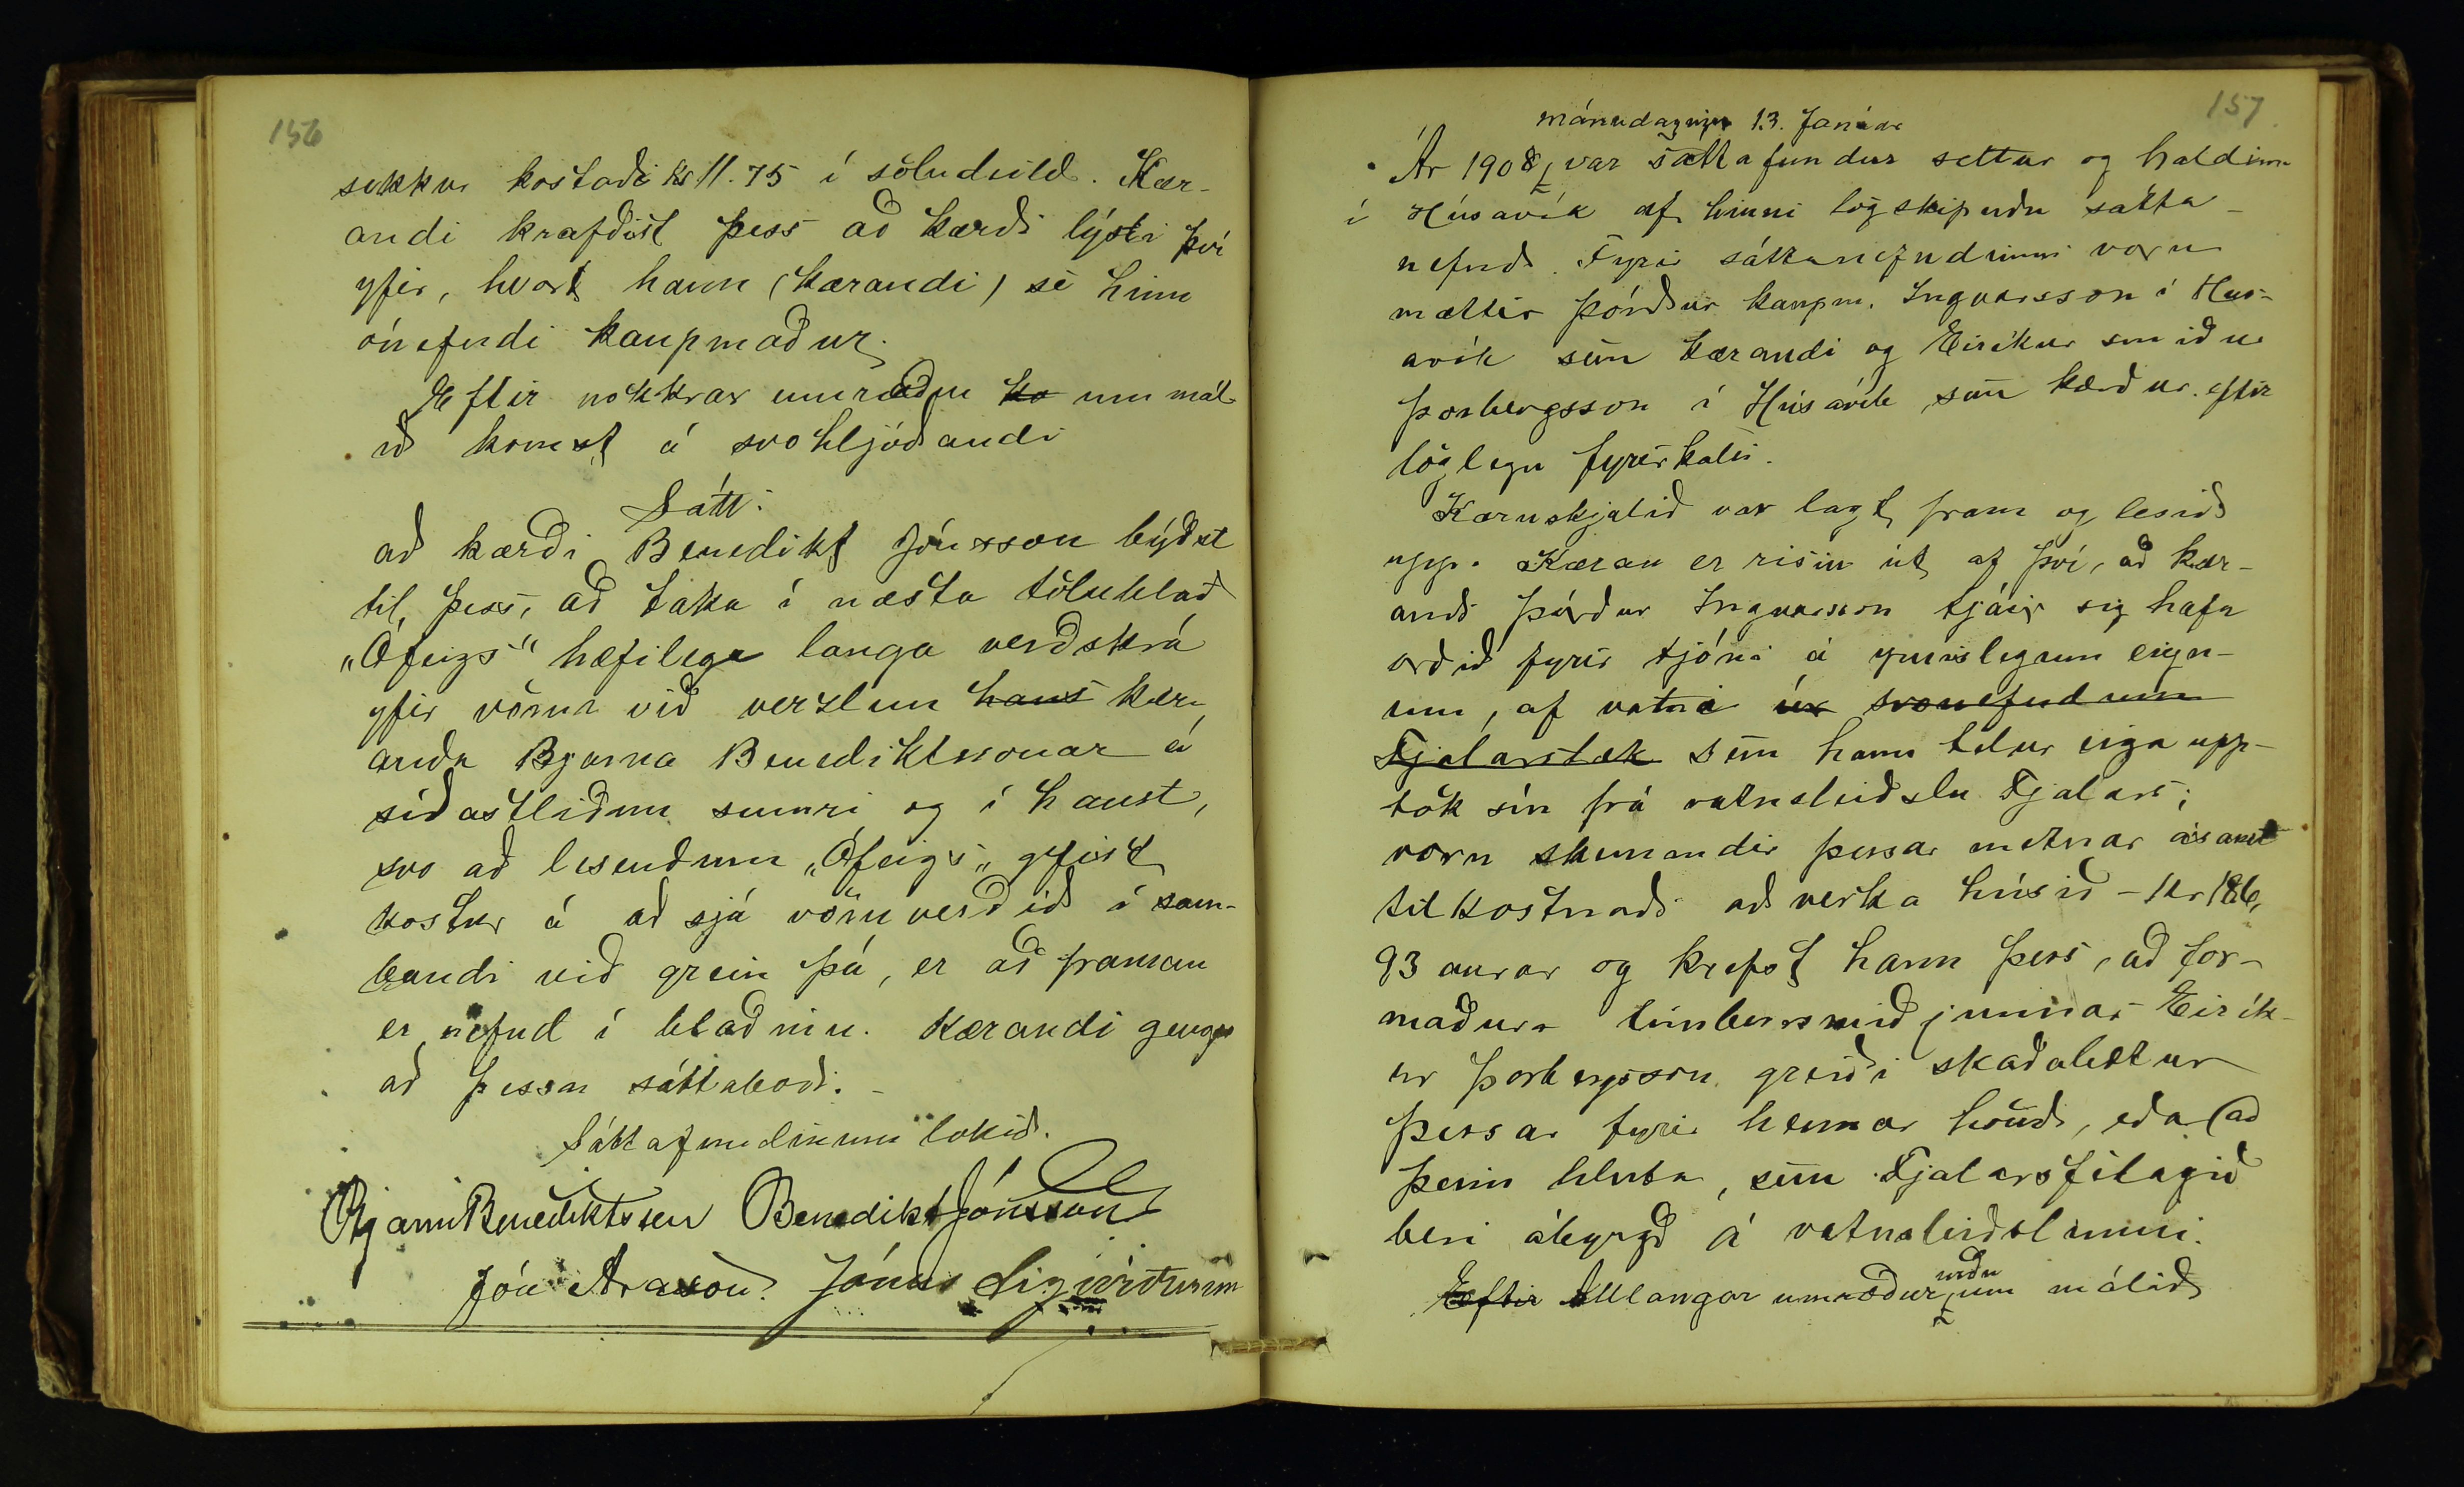 156
sekkur kostaði kr 11.75 í söludeild. Kær-
andi krafðist þess að kærði lýsti því
yfir, hvort hann (kærandi) sé hinn
ónefndi kaupmaður.
Eftir nokkrar umræður ko um mál-
ið komst á svohljóðandi
Sátt:
að kærði Benedikt Jónsson býðst
til þess, að taka í næsta tölublað
„Ófeigs“ hæfilega langa verðskrá
yfir vörur við verzlun hans kær-
anda Bjarna Benediktssonar á
síðastliðnu sumri og í haust,
svo að lesendum „Ófeigs„ gefist
kostur á að sjá vöruverðið í sam-
bandi við grein þá, er að framan
er nefnd í blaðinu. Kærandi gengur
að þessu sáttaboði.-
Sáttafundinum lokið.
Bjarni Benediktsson Benedikt Jónsson
Jón Arason. Jónas Sigurðsson
157
mánudaginn 13. Janúar
Ár 1908, var sáttafundur settur og haldinn
í Húsavík af hinni lögskipuðu sátta-
nefnd. Fyrir sáttanefndinni voru
mættir Þórður kaupm. Ingvarsson í Hús-
avík sem kærandi og Eiríkur smiður
Þorbergsson í Húsavík sem kærður eftir
löglegu fyrirkalli.
Kæruskjalið var lagt fram og lesið
upp. Kæran er risin út af því, að kær-
andi Þórður Ingvarsson tjáir sig hafa
orðið fyrir tjóni á ýmislegum eign-
um, af vatni úr svonefndum
Fjalarslæk sem hann telur eiga upp-
tök sín frá vatnsleiðslu Fjalars;
voru skemmdir þessar metnar ásamt
tilkostnaði að verka húsið - kr 186,
93 aurar og krefst hann þess, að for-
maður timbursmiðjunnar Eirík-
ur Þorbergsson greiði skaðabætur
þessar fyrir hennar hönd, eða (að
þeim hluta, sem Fjalarsfélagið
beri ábyrgð á vatnsleiðslunni.
Eftir Alllangar umræður urðu um málið